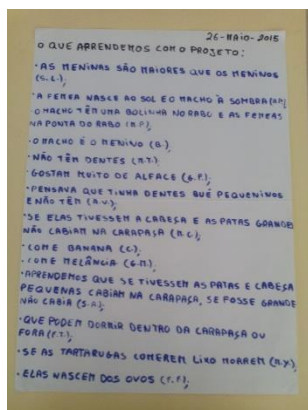 26-MAIO-2015
O QUE APRENDEMOS COM O PROJETO:
• AS MENINAS SÃO MAIORES QUE OS MENINOS
(S.L.);
• A FEMEA NASCE AO SOL E O MACHO À SOMBRA
• O MACHO TÊM UMA BOLINHA NO RABO E AS FEMEAS
NA PONTA DO RABO (M.P.);
• O MACHO É O MENINO (B.);
• NÃO TÊM DENTES (M.T.);
• GOSTAM MUITO DE ALFACE (G.F.);
• PENSAVA QUE TINHA DENTES BUÉ PEQUENINOS
E NÃO TÊM (A.V.);
• SE ELAS TIVESSEM A CABEÇA E AS PATAS GRANDES
NÃO CABIAM NA CARAPAÇA (M.C.);
• COME BANANA (C.);
• COME MELÂNCIA (G.M.);
• APRENDEMOS QUE SE TIVESSEM AS PATAS E CABEÇA
PEQUENAS CABIAM NA CARAPAÇA, SE FOSSE GRANDE
NÃO CABIA (S.A.);
• QUE PODEM DORMIR DENTRO DA CARAPAÇA OU
FORA (F.T.);
• SE AS TARTARUGAS COMEREM LIXO MORREM (M.X.);
• ELAS NASCEM DOS OVOS (F.F.);